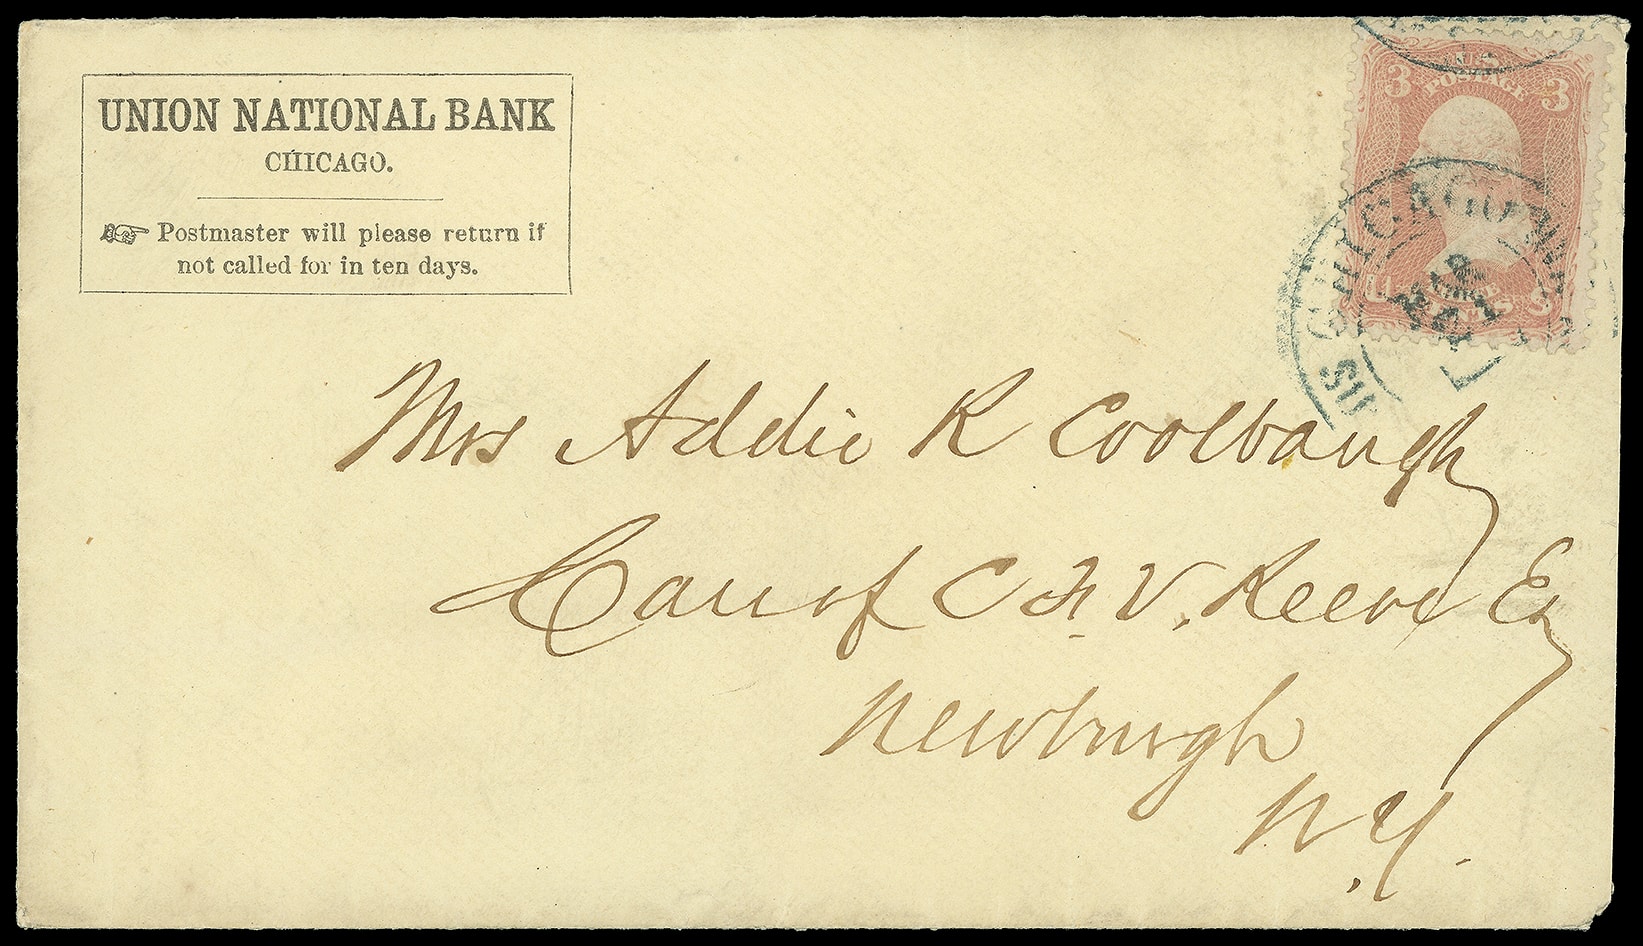 UNION NATIONAL BANK
CHICAGO.
☞ Postmaster will please return if
not called for in ten days.
U S
POSTAGE
3 3
CHICAGO
Mrs Addie K Coolbaugh
Care of C F V. Reeve Esq
Newburgh
N.Y.